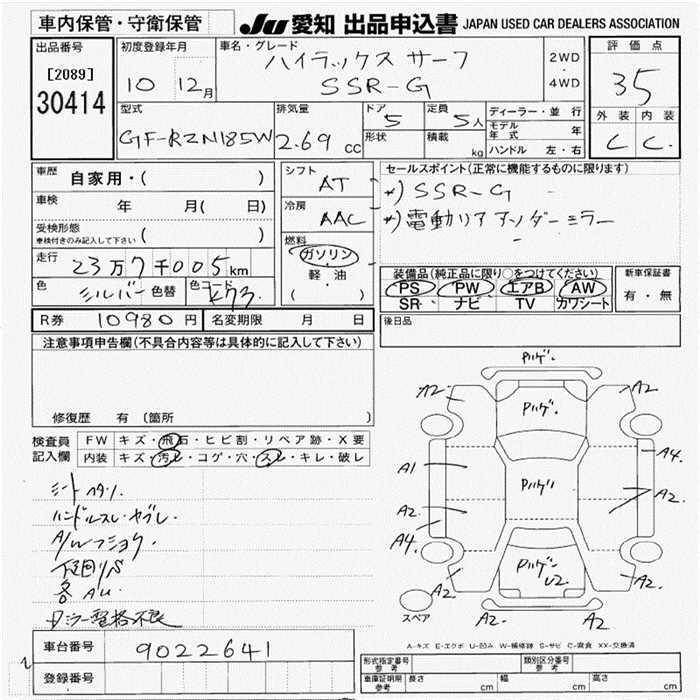 車内保管・守衛保管
JU 愛知 出品申込書 JAPAN USED CAR DEALERS ASSOCIATION
出品番号
[2089]
30414
初度登録年月
10 12月
車名・グレード
ハイラックス サーフ
SSR-G
2WD
・
4WD
評価点
3.5
外装 内装
C C
型式
GF-RZN185W
排気量
2.69 cc
ドア
5
形状
定員
5人
積載
kg
ディーラー・並行
モデル年式 年
ハンドル 左・右
車歴 自家用・( )
車検 年 月( 日)
受検形態
車検付きのみ記入して下さい ( )
走行 23万7千005km
色 シルバー 色替 色コード K73
シフト AT
冷房 AAC
燃料
ガソリン
軽・油
( )
セールスポイント(正常に機能するものに限ります)
*) SSR-G
*) 電動リアアンダーミラー
装備品(純正品に限り○をつけてください)
PS PW エアB AW
SR ナビ TV カワシート
新車保証書
有・無
R券 10980円 名変期限 月 日
後日品
注意事項申告欄(不具合内容等は具体的に記入して下さい)
修復歴 有 (箇所 )
検査員記入欄
FW キズ・飛石・ヒビ割・リペア跡・X要
内装 キズ・汚レ・コゲ・穴・スレ・キレ・破レ
シートヘタリ.
ハンドルスレ・ヤブレ.
A/Wフショク.
下回リS
各AU.
ロラー登格不良
車台番号 9022641
登録番号
ハゲ.
A2. A2
ハゲ.
A1 A4
ハゲ
A2. A2
A4.
ハゲ
U2.
A2 A2
A2 A2
スペア
A-キズ E-エクボ U-凹み W-補修跡 S-サビ C-腐食 XX-交換済
形式指定番号 参考
類別区分番号 参考
車庫証明用 参考 長さ cm 幅 cm 高さ cm